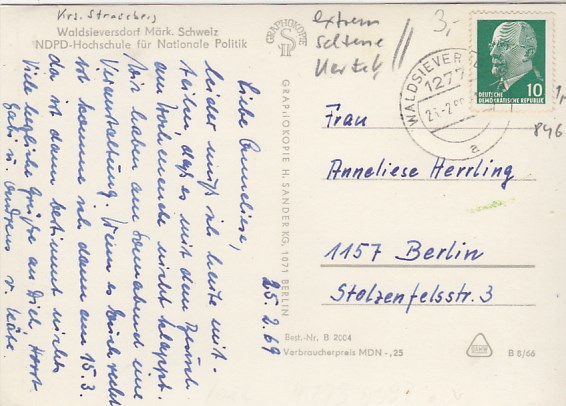 Krs. Strausberg
Waldsieversdorf Märk. Schweiz
NDPD-Hochschule für Nationale Politik
GRAPHOKOPIE
GRAPHOKOPIE H. SANDER KG, 1071 BERLIN
Liebe Anneliese,
leider muß ich heute mit-
teilen, daß es mit dem
am Wochenende nicht klappt.
Wir haben am Sonnabend eine
Veranstaltung. Wenn es Euch recht
ist komme ich dann am 15.3.
da ist dann bestimmt nichts
Viele herzliche Grüße an Dich Horst
Gabi u. Andreas v. Käte.
25.2.69
extrem
seltene
3,-
WALDSIEVERSD
1277
DEUTSCHE
DEMOKRATISCHE REPUBLIK
10
a
846
Frau
Anneliese Herrling
1157 Berlin
Stolzenfelsstr. 3
Best.-Nr. B 2004
Verbraucherpreis MDN -,25
B 8/66